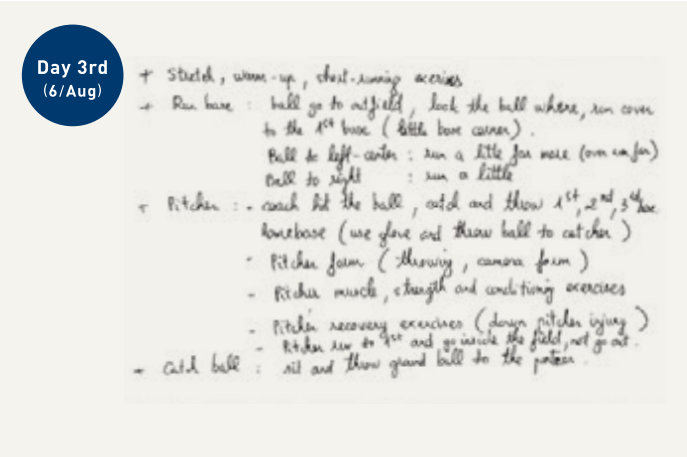 Day 3rd
(6/Aug)
+ Stretch, warm-up, short-running exercises
+ Run base : ball go to outfield, look the ball where, run cover
to the 1st base (little base corner).
Ball to left-center : run a little far more (over far)
Ball to right : run a little
+ Pitcher : - coach hit the ball, catch and throw 1st, 2nd, 3rd base
homebase (use glove and throw ball to catcher)
- Pitcher form (throwing, camera form)
- Pitcher muscle, strength and conditioning exercises
- Pitcher recovery exercises (down pitcher injury)
- Pitcher run to 1st and go inside the field, not go out.
+ Catch ball : sit and throw ground ball to the partner